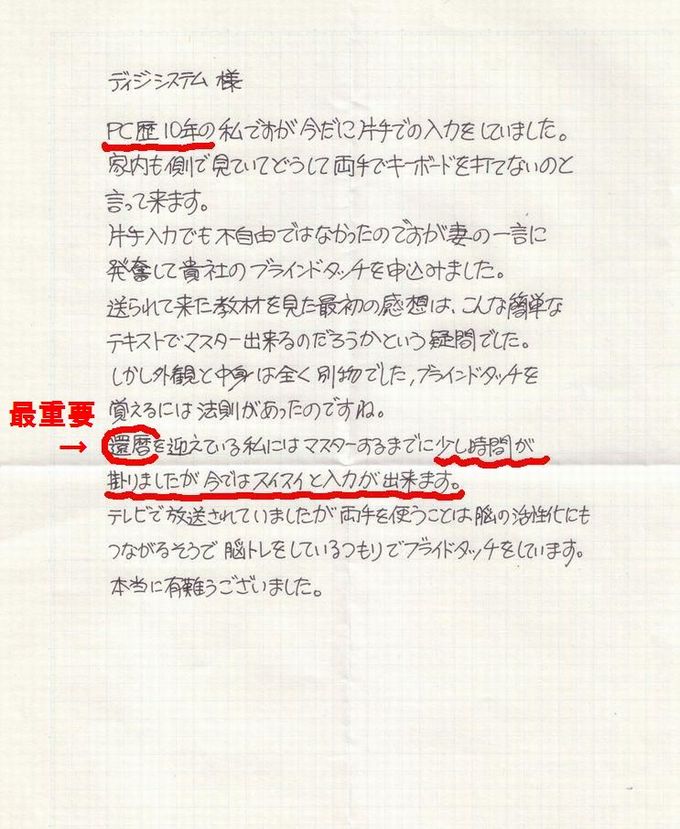 ディジシステム 様
PC歴10年の私ですが今だに片手での入力をしていました。
家内も側で見ていてどうして両手でキーボードを打てないのと
言って来ます。
片手入力でも不自由ではなかったのですが妻の一言に
発奮して貴社のブラインドタッチを申込みました。
送られて来た教材を見た最初の感想は、こんな簡単な
テキストでマスター出来るのだろうかという疑問でした。
しかし外観と中身は全く別物でした,ブラインドタッチを
覚えるには法則があったのですね。
最重要
→
還暦を迎えている私にはマスターするまでに少し時間が
掛りましたが今ではスイスイと入力が出来ます。
テレビで放送されていましたが両手を使うことは脳の活性化にも
つながるそうで脳トレをしているつもりでブライドタッチをしています。
本当に有難うございました。